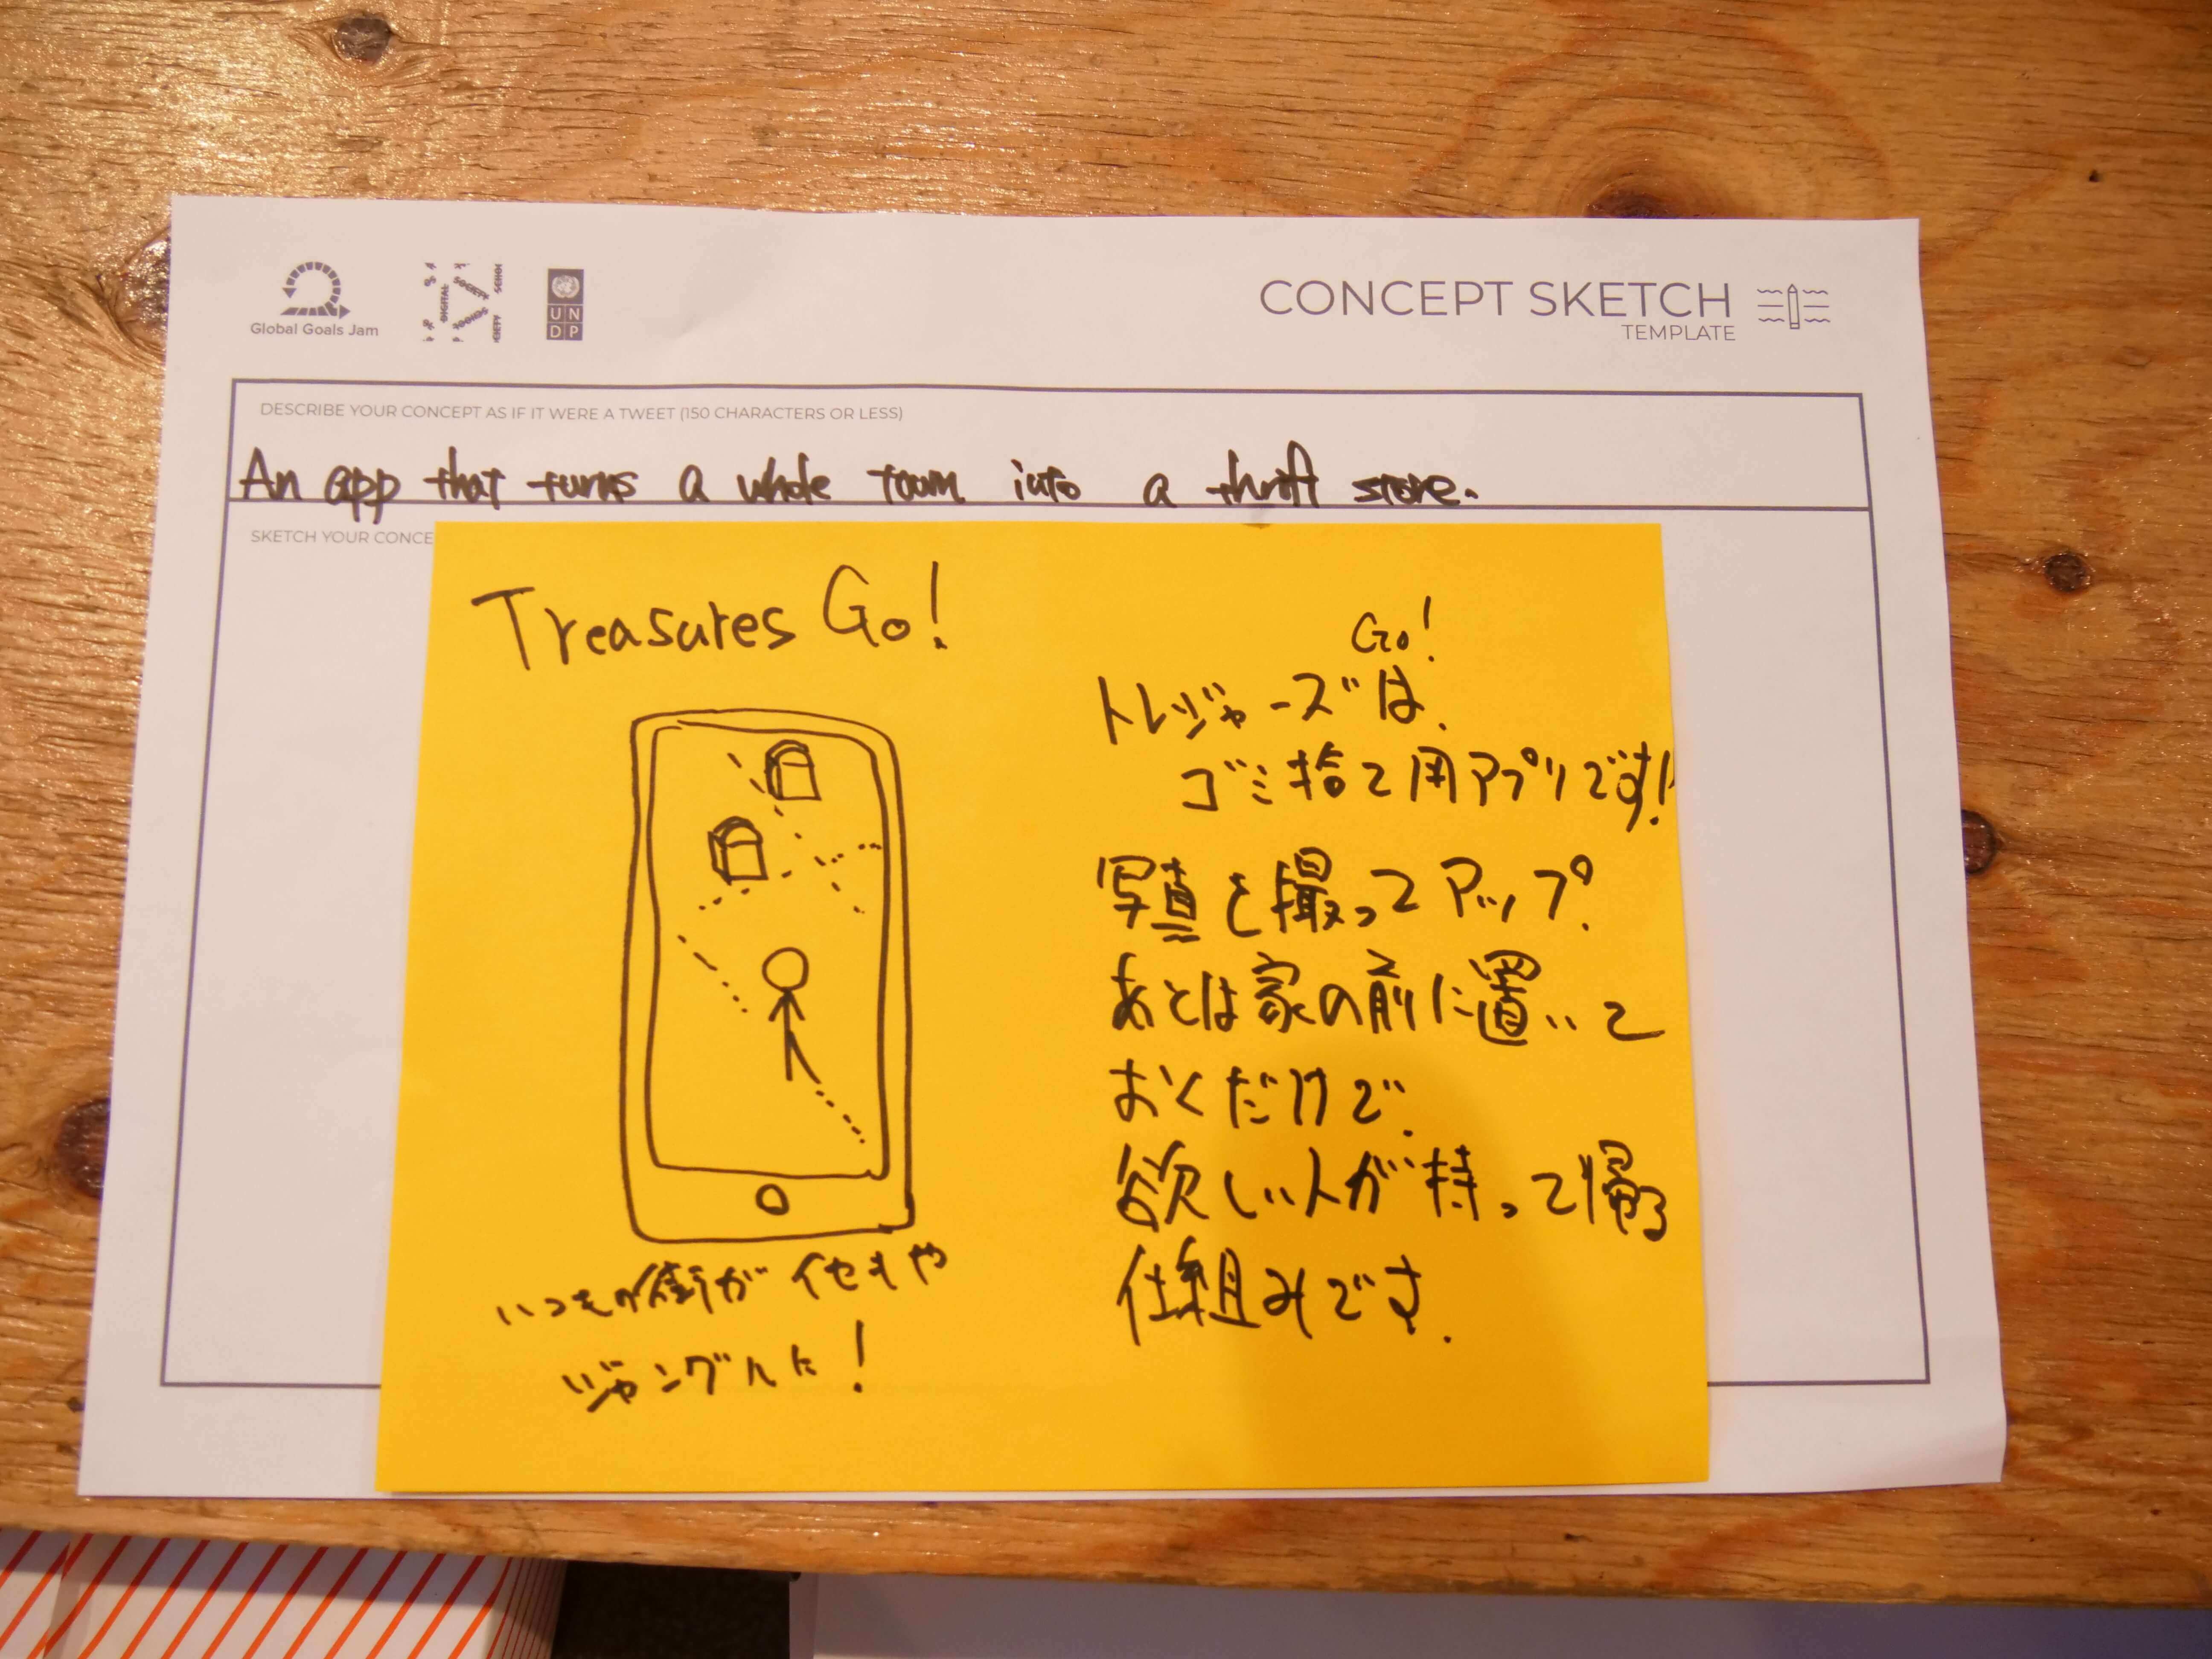 Global Goals Jam
DIGITAL SOCIETY SCHOOL
UN
DP
CONCEPT SKETCH
TEMPLATE
DESCRIBE YOUR CONCEPT AS IF IT WERE A TWEET (150 CHARACTERS OR LESS)
An app that turns a whole town into a thrift store.
SKETCH YOUR CONCE
Treasures Go!
いつもの街がイセキや
ジャングルに!
Go!
トレジャーズは、
ゴミ捨て用アプリです!
写真を撮ってアップ。
あとは家の前に置いて
おくだけで、
欲しい人が持って帰る
仕組みです。